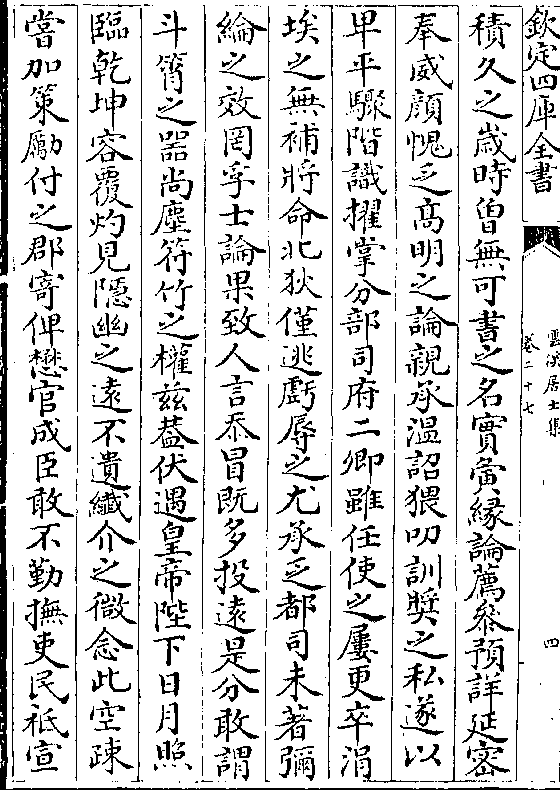 欽定四庫全書
雲溪居士集
卷二十七
四
積久之歲時曾無可書之名實夤緣論薦叅預詳延密
奉威顔愧乏髙明之論親承溫詔猥叨訓奬之私遂以
卑平驟階識擢掌分部司府二卿雖任使之屢更卒涓
埃之無補將命北狄僅逃虧辱之尤承乏都司未著彌
綸之效罔孚士論果致人言忝冒既多投逺是分敢謂
斗筲之器尚塵符竹之權兹葢伏遇皇帝陛下日月照
臨乾坤容覆灼見隱幽之逺不遺纎介之微念此空疎
嘗加策勵付之郡寄俾懋官成臣敢不勤撫吏民祗宣